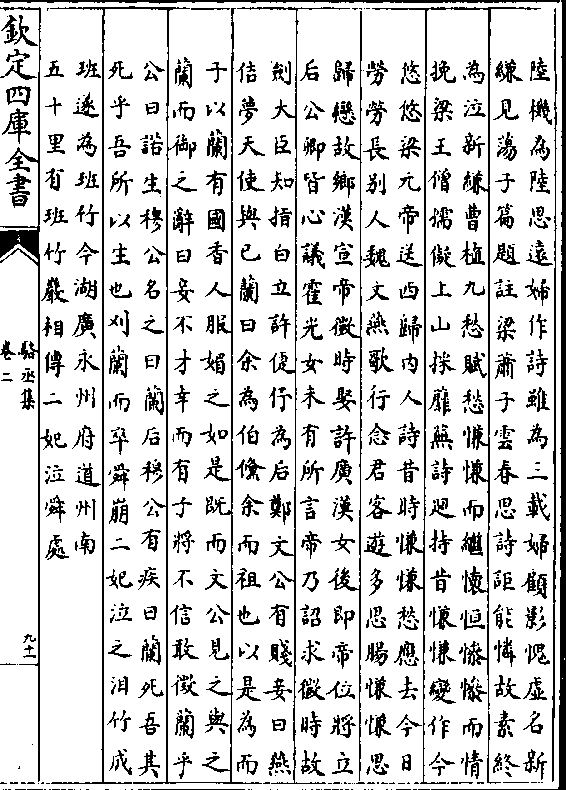 陸機為陸思遠婦作詩雖為三載婦顧影愧虛名新
縑見蕩子篇題註梁蕭子雲春思詩詎能憐故素終
為泣新縑曹植九愁賦愁慊慊而繼懷恒慘慘而情
挽梁王僧孺儗上山採蘼蕪詩逈持昔慊慊變作今
悠悠梁元帝送西歸内人詩昔時慊慊愁應去今日
勞勞長别人魏文燕歌行念君客遊多思腸慊慊思
歸戀故鄉漢宣帝微時娶許廣漢女後即帝位將立
后公卿皆心議霍光女未有所言帝乃詔求微時故
劍大臣知指白立許倢伃為后鄭文公有賤妾曰燕
佶夢天使與已蘭曰余為伯鯈余而祖也以是為而
子以蘭有國香人服媚之如是既而文公見之與之
蘭而御之辭曰妾不才幸而有子將不信敢徵蘭乎
公曰諾生穆公名之曰蘭后穆公有疾曰蘭死吾其
死乎吾所以生也刈蘭而卒舜崩二妃泣之泪竹成
班遂為班竹今湖廣永州府道州南
五十里有班竹巖相傳二妃泣舜處
欽定四庫全書
駱丞集
卷二
九十一